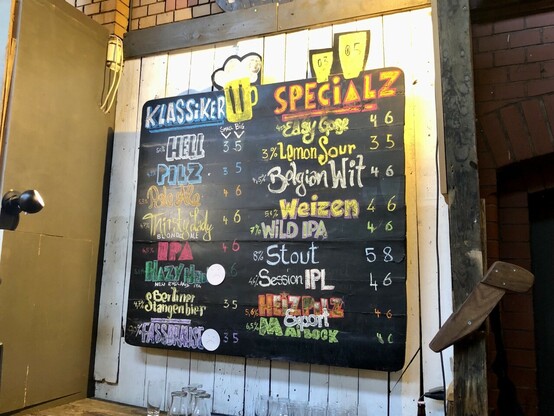 KLASSiKER
SPECiALZ
0,3 0,5
Small Big
HELL 3 5
PILZ 3 5
4 6
Thirsty Lady 4 6
BLONDE ALE
IPA 4 6
HAZY
NEW ENGLAND IPA
Berliner
Stangenbier 3 5
FASSBRAUSE 3 5
Easy Gose 4 6
3% Lemon Sour 3 5
Belgian Wit 4 6
Weizen 4 6
7% WiLD IPA 4 6
8% Stout 5 8
Session IPL 4 6
HEIZPILZ
Export 4 6
MAIBOCK